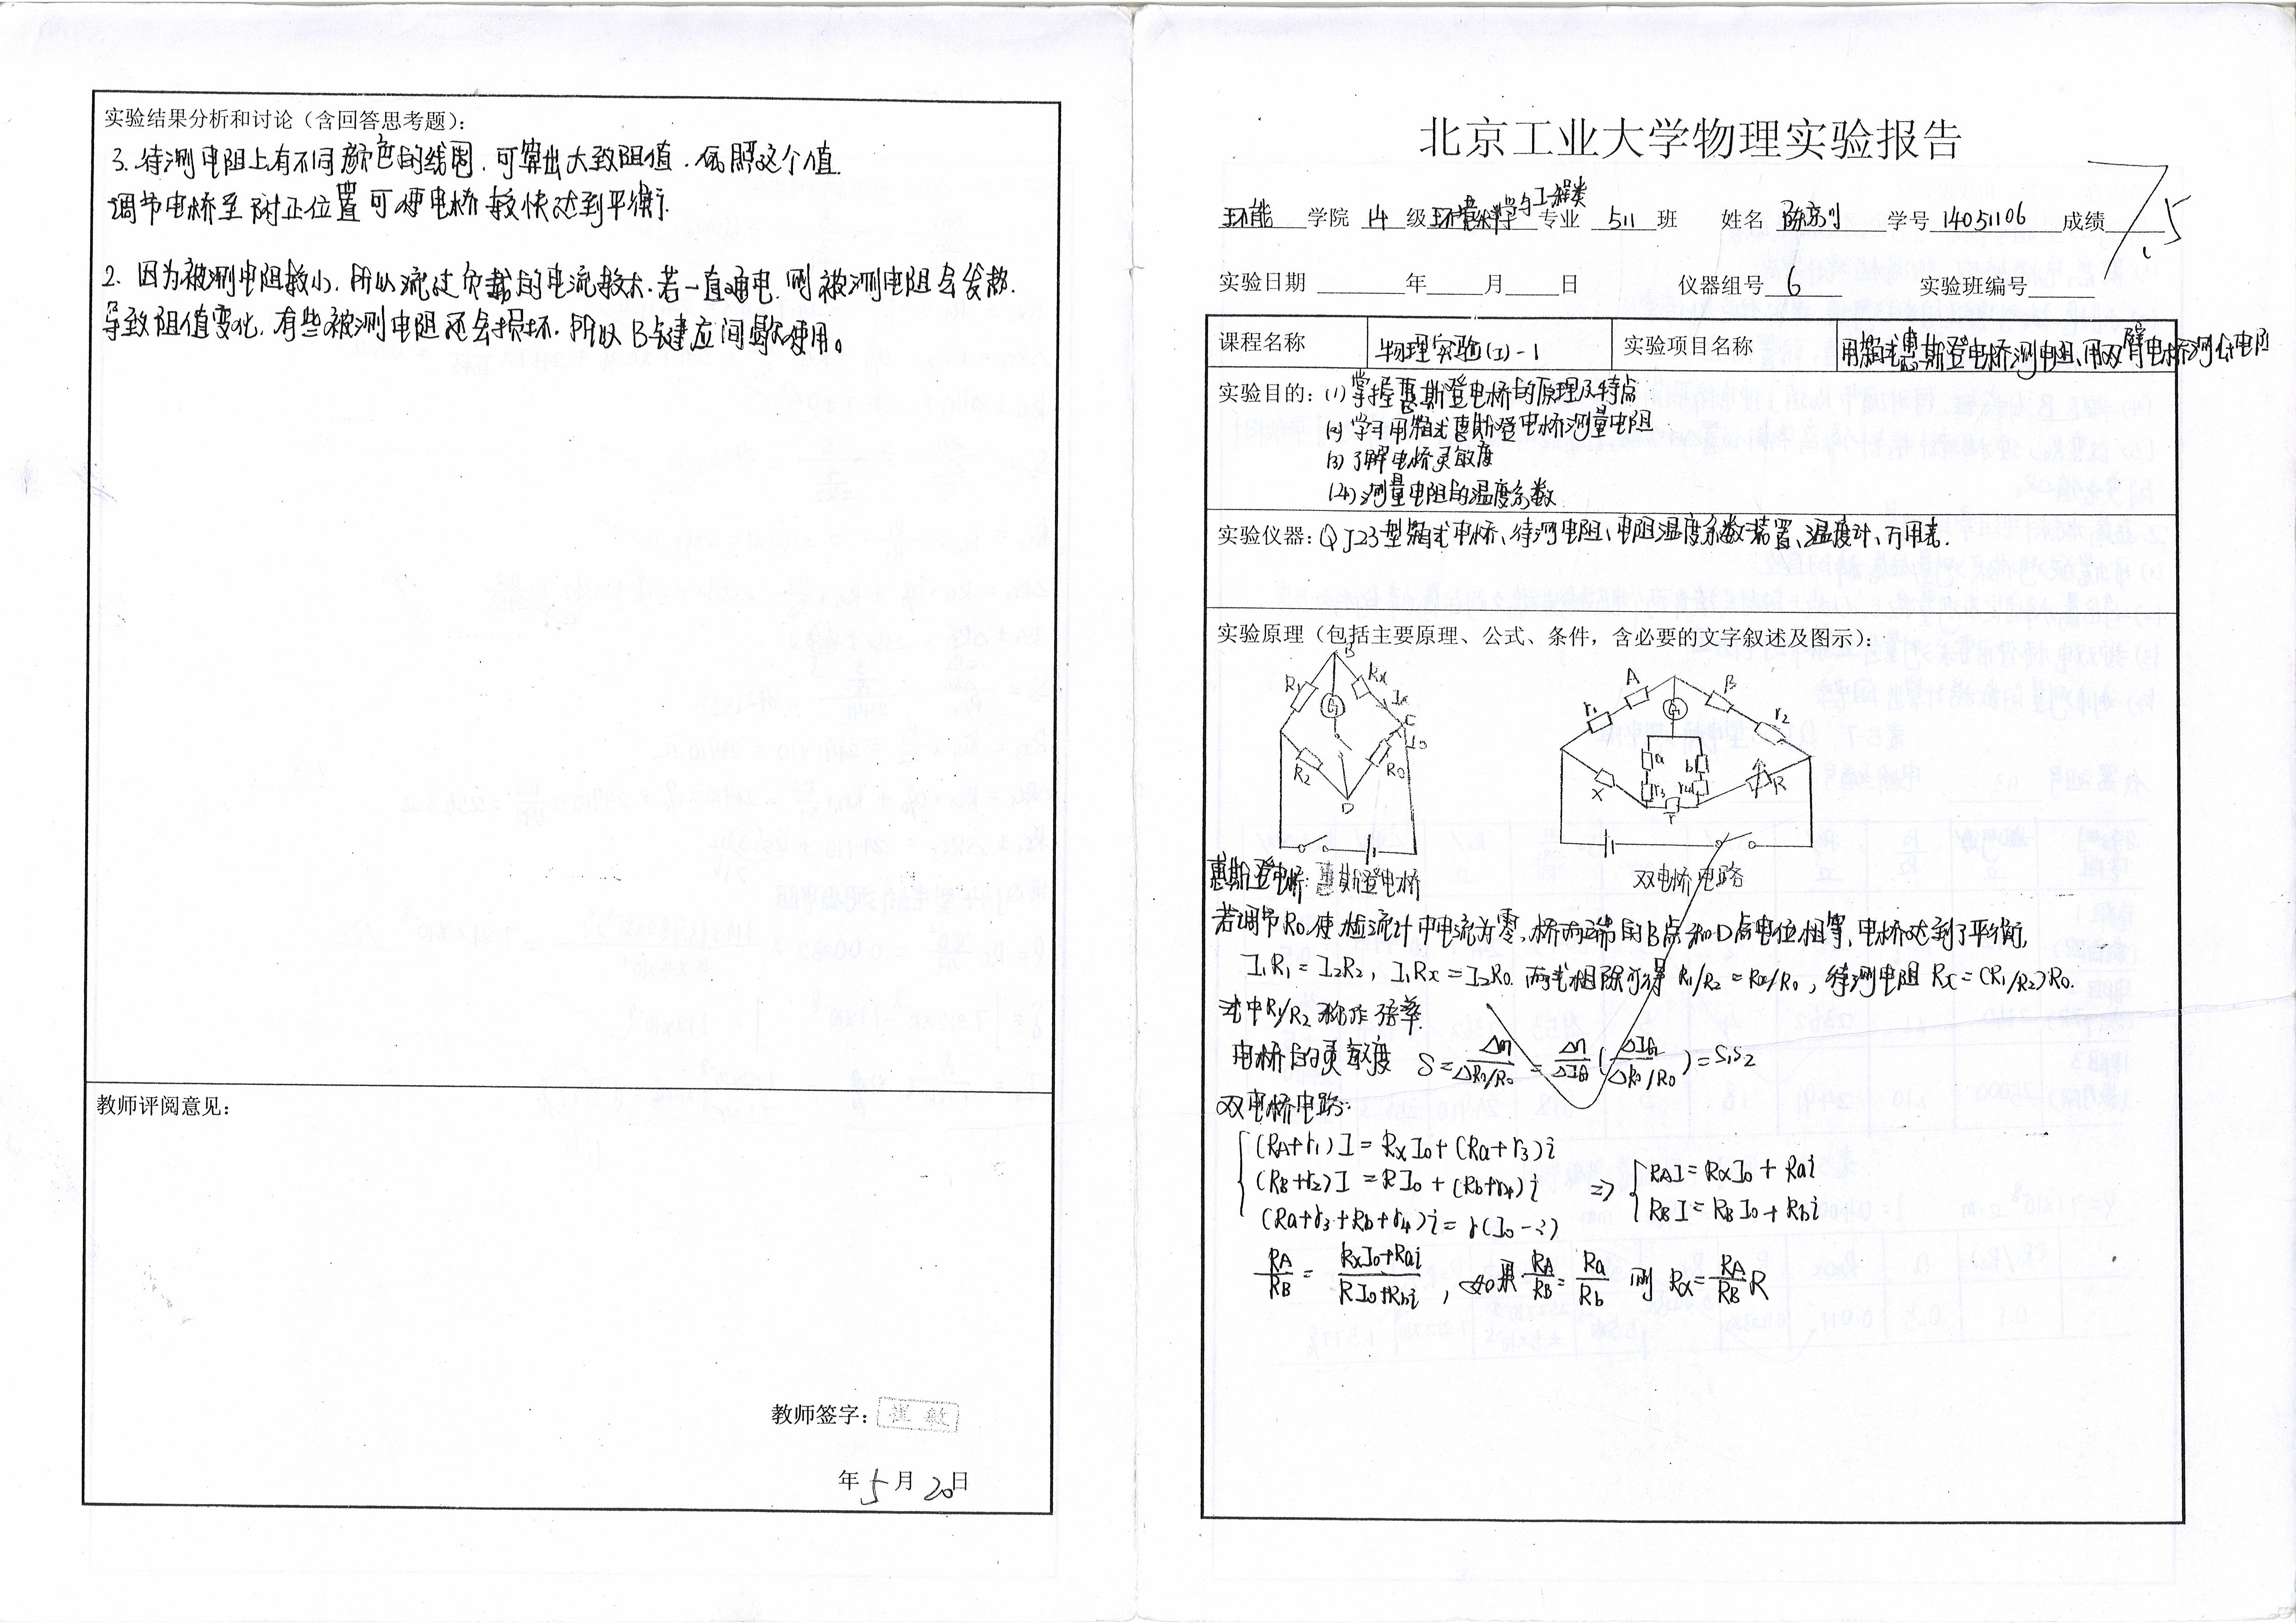 实验结果分析和讨论（含回答思考题）：
3. 待测电阻上有不同颜色的线圈，可算出大致阻值，依照这个值
调节电桥至附近位置可使电桥较快达到平衡.
2. 因为被测电阻较小，所以流过负载的电流较大.若一直通电，则被测电阻会发热.
导致阻值变化，有些被测电阻还会损坏，所以B点键应间歇使用。
教师评阅意见：
教师签字： 崔敏
年5月20日
北京工业大学物理实验报告
环能学院 14级环境科学与工程类专业 511班 姓名 学号14051106 成绩 7.5
实验日期 年 月 日 仪器组号 6 实验班编号
课程名称 物理实验(I)-1 实验项目名称 用箱式惠斯登电桥测电阻、用双臂电桥测低电阻
实验目的：(1)掌握惠斯登电桥的原理及特点
(2)学习用箱式惠斯登电桥测量电阻
(3)了解电桥灵敏度
(4)测量电阻的温度系数
实验仪器：QJ23型箱式电桥、待测电阻、电阻温度系数装置、温度计、万用表.
实验原理（包括主要原理、公式、条件，含必要的文字叙述及图示）：
B
R1 Rx Ix
G C
I0
R2 R0
D
A B
r1 G r2
a b
X r3 r4 R
r
惠斯登电桥： 惠斯登电桥 双电桥电路
若调节R0使检流计中电流为零，桥两端的B点和D点电位相等，电桥达到了平衡，
I1R1=I2R2, I1Rx=I2R0. 两式相除可得 R1/R2=Rx/R0, 待测电阻 Rx=(R1/R2)R0.
式中R1/R2称作倍率.
电桥的灵敏度 S=Δn/(ΔR0/R0)=Δn/ΔIG(ΔIG/(ΔR0/R0))=S1S2
双电桥电路：
(RA+r1)I=RxI0+(Ra+r3)i
(RB+r2)I=RI0+(Rb+r4)i ⇒ RAI=RxI0+Rai
(Ra+r3+Rb+r4)i=r(I0-i) RBI=RBI0+Rbi
RA/RB=(RxI0+Rai)/(RI0+Rbi), 如果RA/RB=Ra/Rb 则 Rx=RA/RB R